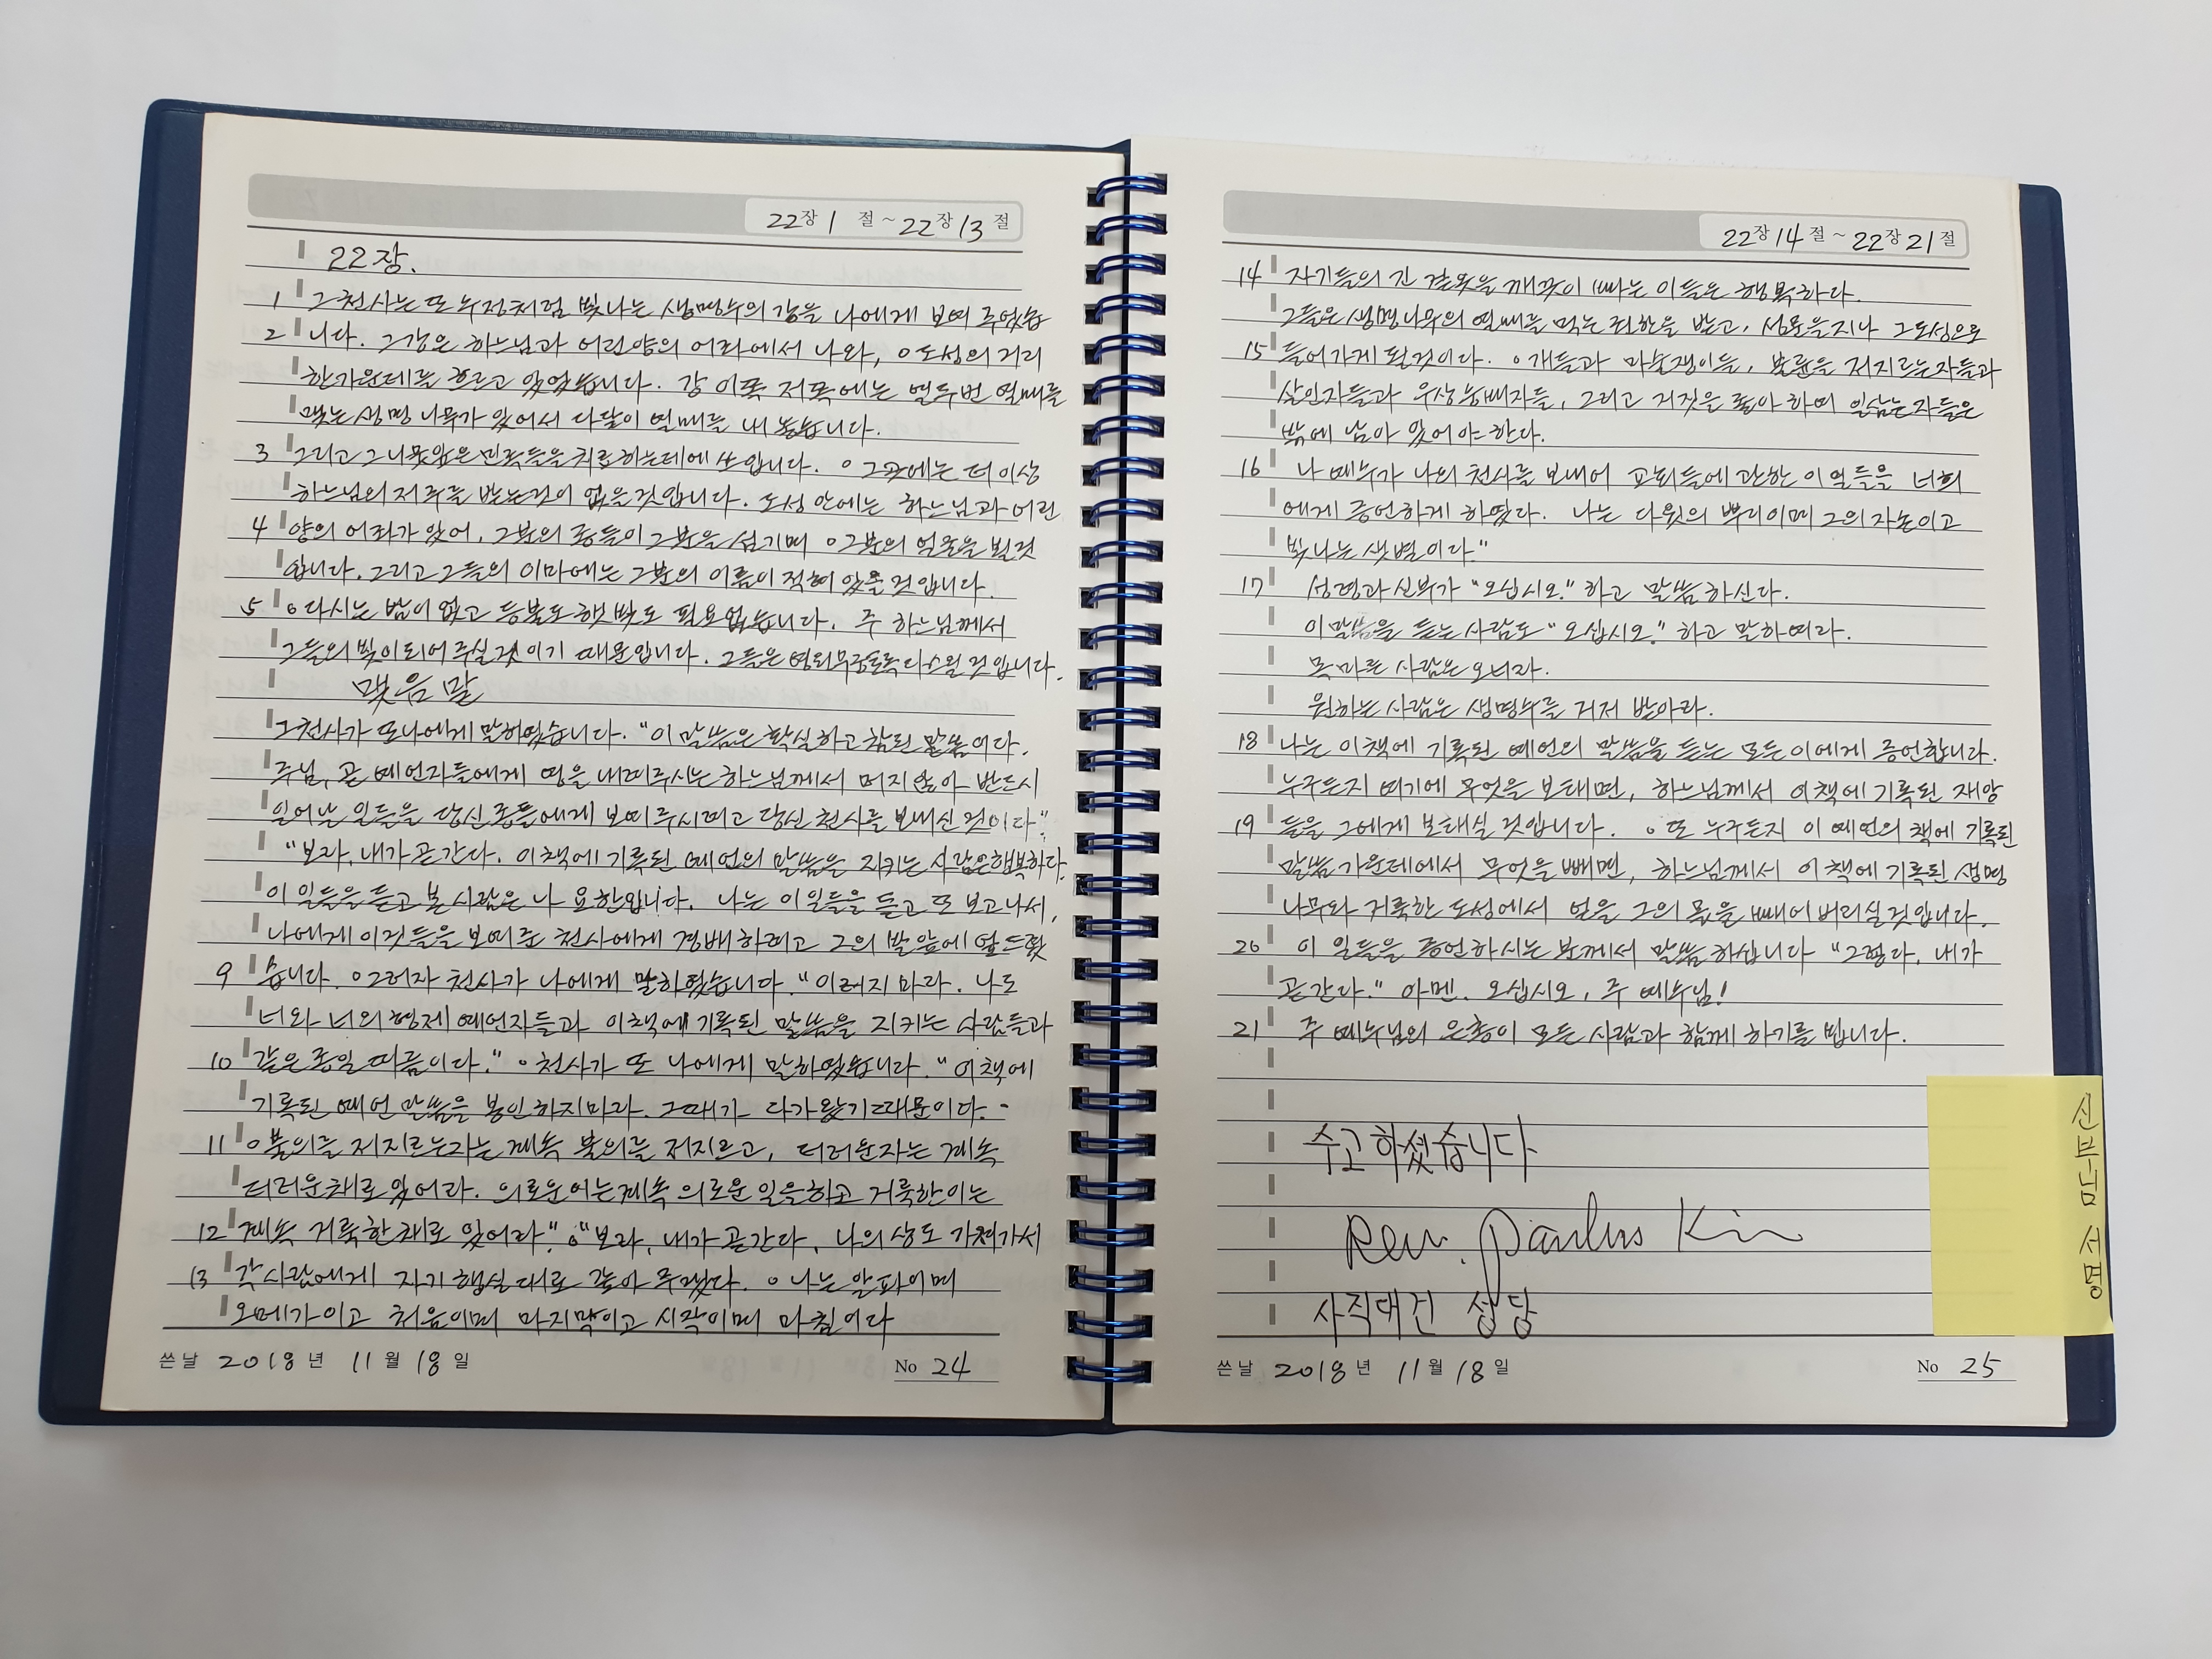 22장 1 절 ~ 22장 13 절
22장.
1 그천사는 또 수정처럼 빛나는 생명수의 강을 나에게 보여 주었습
2 니다. 그강은 하느님과 어린양의 어좌에서 나와, ○도성의 거리
한가운데를 흐르고 있었습니다. 강 이쪽 저쪽에는 열두번 열매를
맺는 생명 나무가 있어서 다달이 열매를 내 놓습니다.
3 그리고 그 나뭇잎은 민족들을 치료하는데에 쓰입니다. ○ 그곳에는 더 이상
하느님의 저주를 받는것이 없을것입니다. 도성 안에는 하느님과 어린
4 양의 어좌가 있어, 그분의 종들이 그분을 섬기며 ○그분의 얼굴을 뵐것
입니다. 그리고 그들의 이마에는 그분의 이름이 적혀 있을 것입니다.
5 ○다시는 밤이 없고 등불도 햇빛도 필요없습니다. 주 하느님께서
그들의 빛이되어 주실 것이기 때문입니다. 그들은 영원무궁토록 다스릴 것입니다.
맺음말
그천사가 또나에게 말하였습니다. "이 말씀은 확실하고 참된 말씀이다.
주님, 곧 예언자들에게 영을 내려주시는 하느님께서 머지않아 반드시
일어날 일들을 당신 종들에게 보여주시려고 당신 천사를 보내신 것이다".
"보라, 내가 곧간다. 이책에 기록된 예언의 말씀을 지키는 사람은행복하다.
이 일들을 듣고 본 사람은 나 요한입니다. 나는 이 일들을 듣고 또 보고나서,
나에게 이것들을 보여준 천사에게 경배하려고 그의 발 앞에 엎드렸
9 습니다. ○그러자 천사가 나에게 말하였습니다. "이러지 마라. 나도
너와 너의 형제 예언자들과 이책에 기록된 말씀을 지키는 사람들과
10 같은 종일 따름이다." ○천사가 또 나에게 말하였습니다. "이책에
기록된 예언 말씀을 봉인하지마라. 그때가 다가왔기때문이다.
11 ○불의를 저지르는자는 계속 불의를 저지르고, 더러운자는 계속
더러운채로 있어라. 의로운이는계속 의로운 일을하고 거룩한이는
12 계속 거룩한 채로 있어라." ○"보라, 내가 곧간다. 나의 상도 가져가서
13 각사람에게 자기 행실대로 갚아 주겠다. ○나는 알파이며
오메가이고 처음이며 마지막이고 시작이며 마침이다
쓴날 2018년 11월 18일 No 24
22장 14절 ~ 22장 21절
14 자기들의 긴 겉옷을 깨끗이 빠는 이들은 행복하다.
그들은 생명나무의 열매를 먹는 권한을 받고, 성문을지나 그도성으로
15 들어가게 될것이다. ○개들과 마술쟁이들, 불륜을 저지르는자들과
살인자들과 우상숭배자들, 그리고 거짓을 좋아 하며 일삼는자들은
밖에 남아 있어야 한다.
16 나 예수가 나의 천사를 보내어 교회들에 관한 이 일들을 너희
에게 증언하게 하였다. 나는 다윗의 뿌리이며 그의 자손이고
빛나는 샛별이다."
17 성령과 신부가 "오십시오." 하고 말씀하신다.
이말씀을 듣는 사람도 "오십시오." 하고 말하여라.
목마른 사람은 오너라.
원하는 사람은 생명수를 거저 받아라.
18 나는 이책에 기록된 예언의 말씀을 듣는 모든 이에게 증언합니다.
누구든지 여기에 무엇을 보태면, 하느님께서 이책에 기록된 재앙
19 들을 그에게 보태실 것입니다. ○또 누구든지 이 예언의 책에 기록된
말씀 가운데에서 무엇을 빼면, 하느님께서 이책에 기록된 생명
나무와 거룩한 도성에서 얻을 그의 몫을 빼어 버리실것입니다.
20 이 일들을 증언하시는 분께서 말씀하십니다 "그렇다, 내가
곧간다." 아멘. 오십시오, 주 예수님!
21 주 예수님의 은총이 모든 사람과 함께 하기를 빕니다.
수고 하셨습니다
Rev. Paulus Kim
사직대건 성당
쓴날 2018년 11월 18일 No 25
신부님 서명